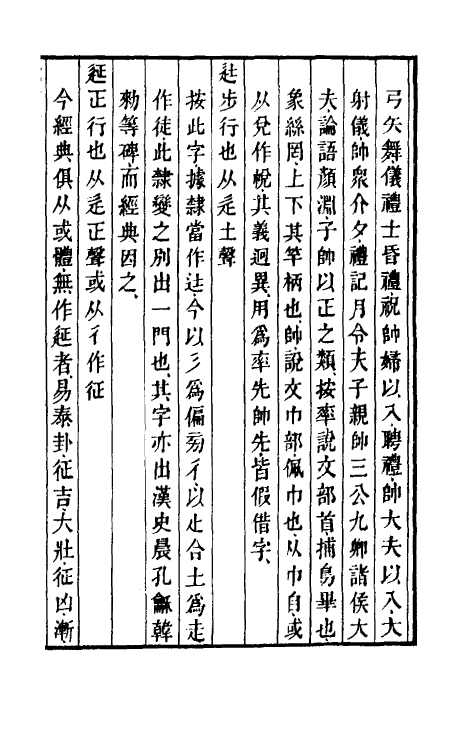 弓矢舞儀禮士昏禮祝帥婦以入聘禮帥大夫以入大
射儀帥衆介夕禮記月令天子親帥三公九卿諸侯大
夫論語顏淵子帥以正之類按率說文部首捕鳥畢也
象絲罔上下其竿柄也帥說文巾部佩巾也从巾𠂤或
从兌作帨其義迥異用爲率先帥先皆假借字
𨑒步行也从辵土聲
按此字據隸當作𨑒今以彡爲偏旁彳以止合土爲走
作徒此隸變之別出一門也其字亦出漢史晨孔龢韓
勑等碑而經典因之
𨒌正行也从辵正聲或从彳作征
今經典俱从或體無作𨒌者易泰卦征吉大壯征凶漸